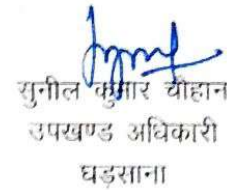 सुनील कुमार चौहान
उपखण्ड अधिकारी
घड़साना